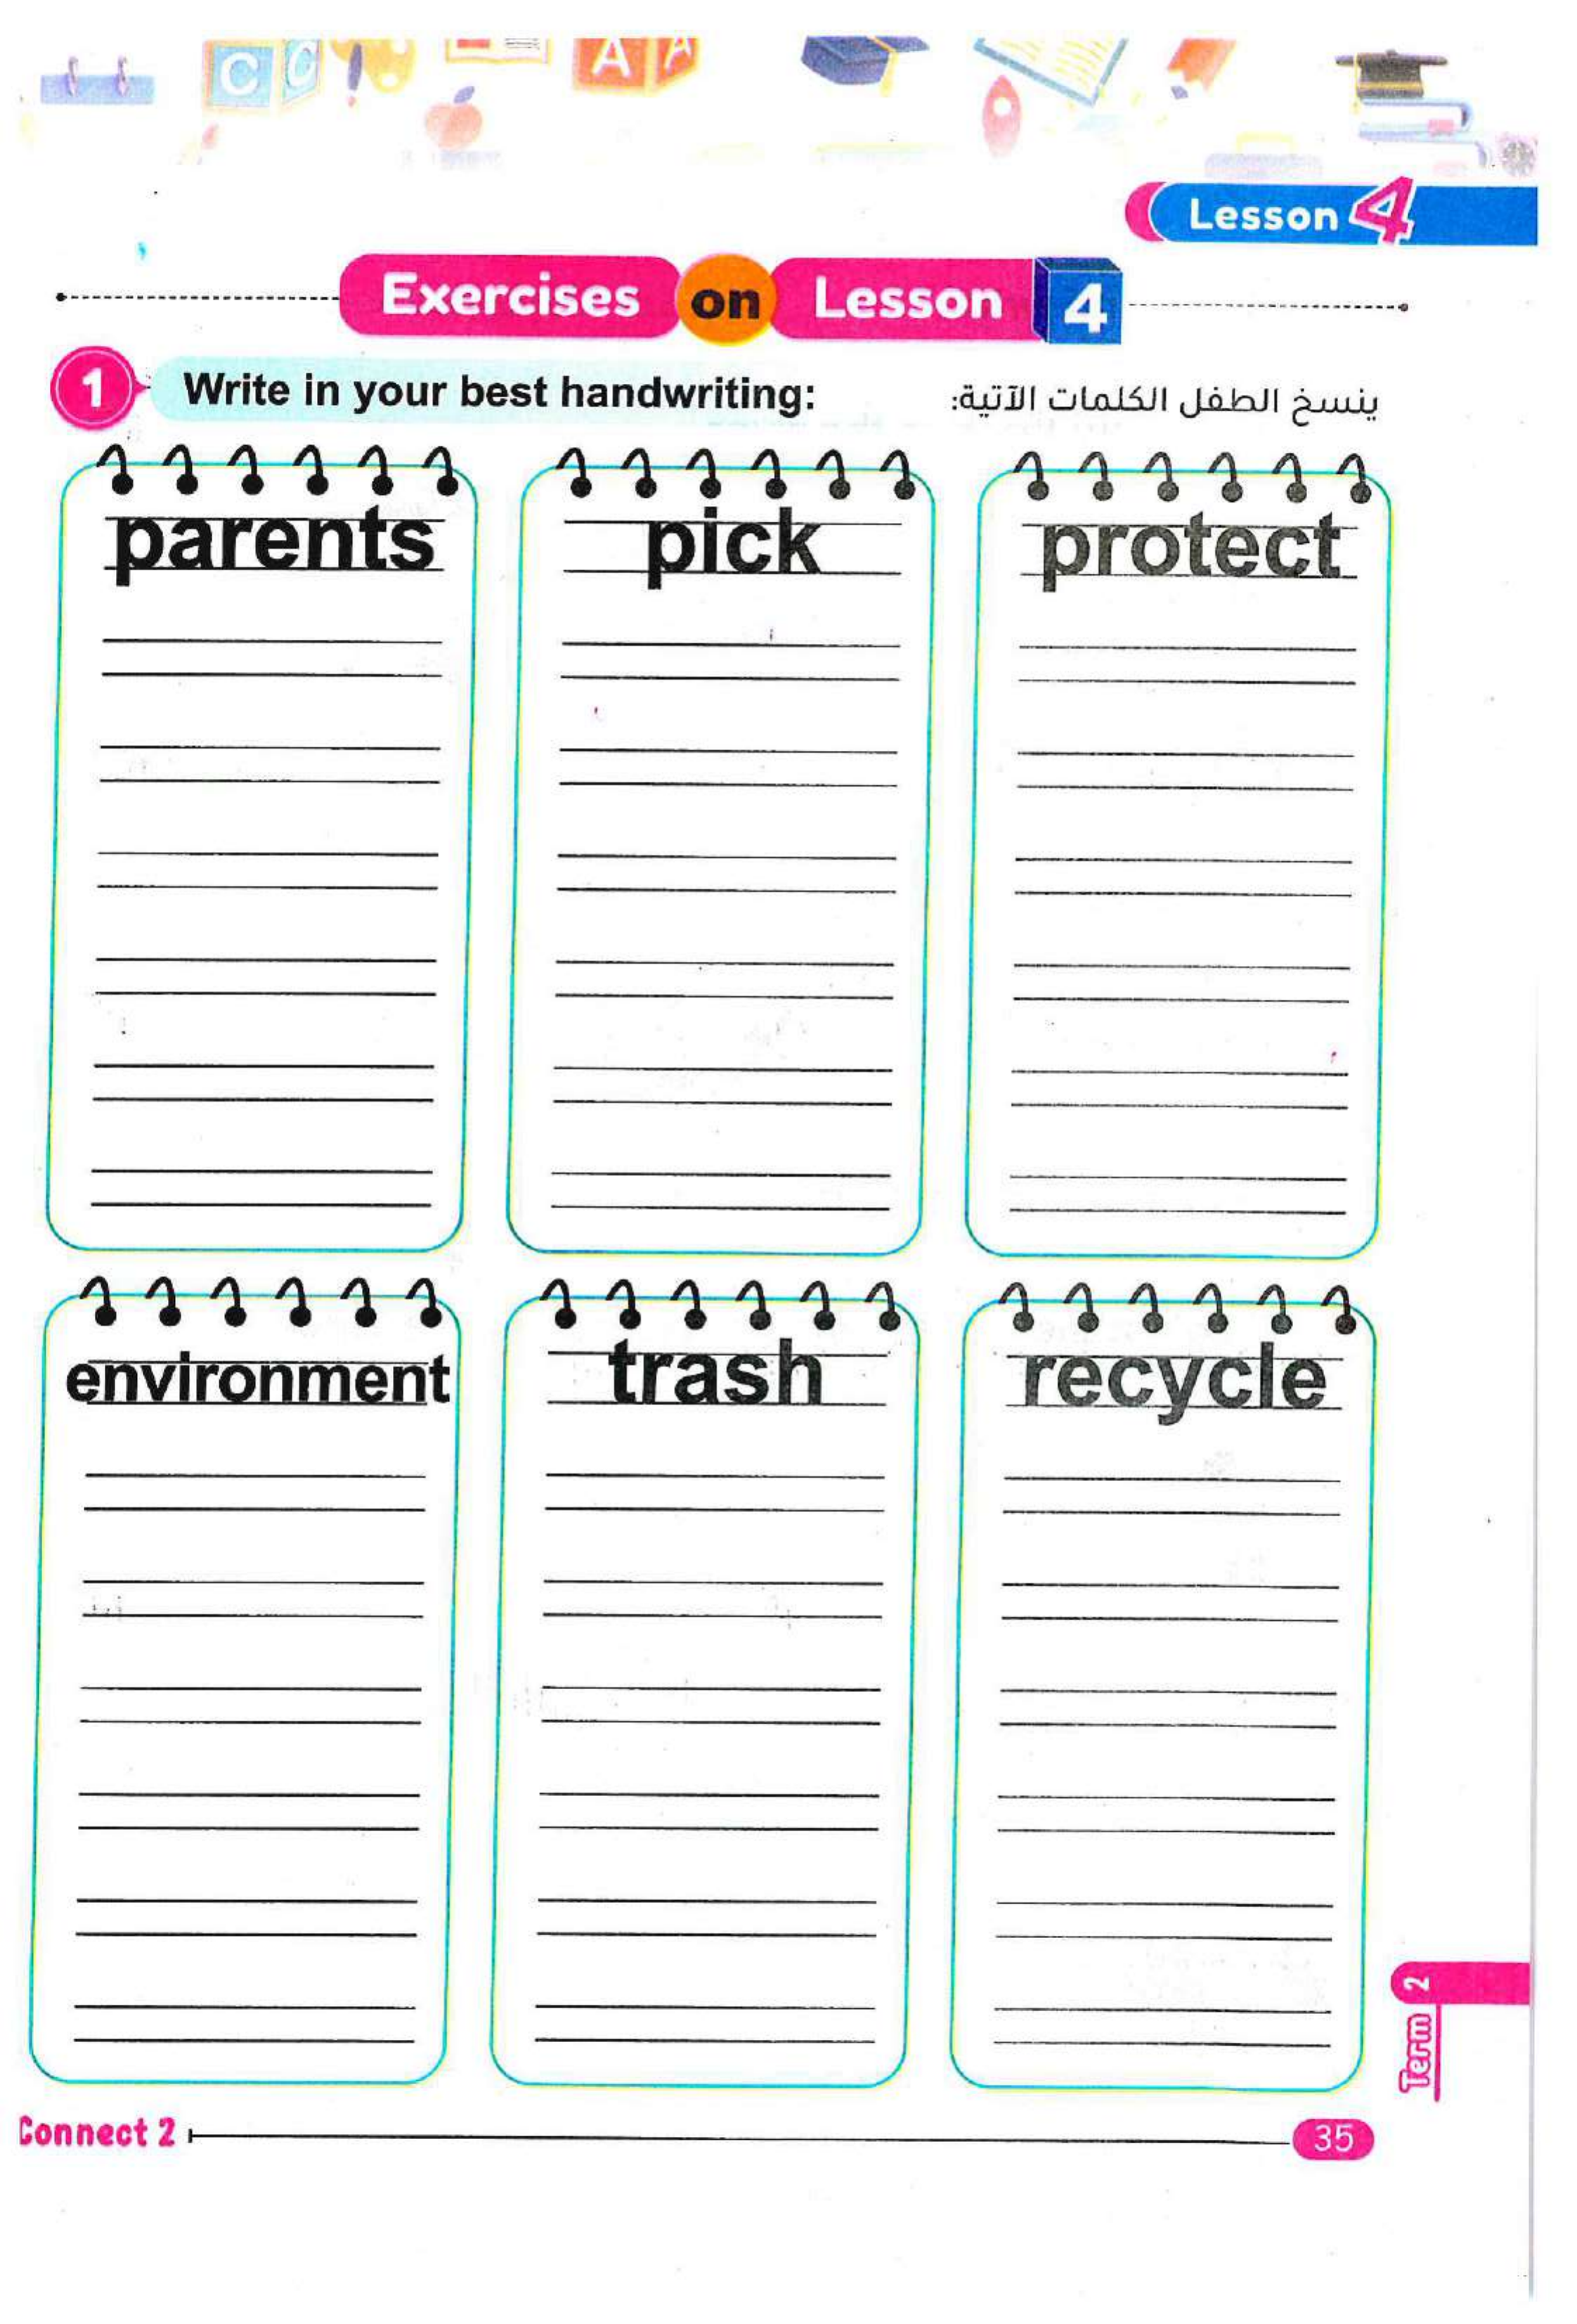 C C A A
Lesson 4
Exercises on Lesson 4
1 Write in your best handwriting: ينسخ الطفل الكلمات الآتية:
parents pick protect
environment trash recycle
Term 2
Connect 2 35